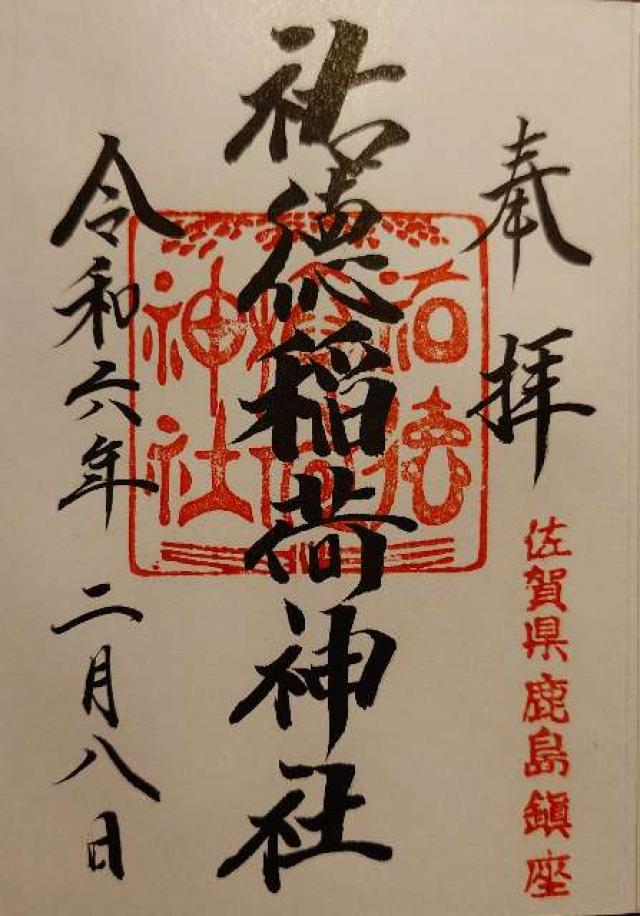 奉拝
佐賀県鹿島鎮座
祐徳稲荷神社
祐徳
稲荷
神社
令和六年二月八日